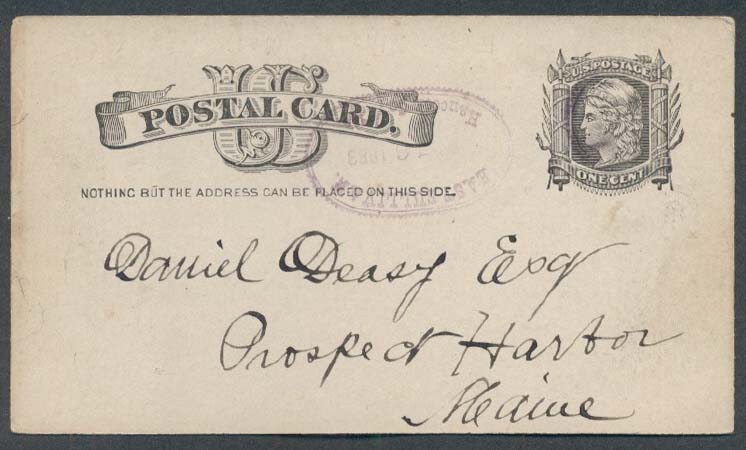 US
POSTAL CARD.
U.S. POSTAGE
ONE CENT
NOTHING BUT THE ADDRESS CAN BE PLACED ON THIS SIDE.
1883
EAST
Daniel Deasy Esq
Prospect Harbor
Maine